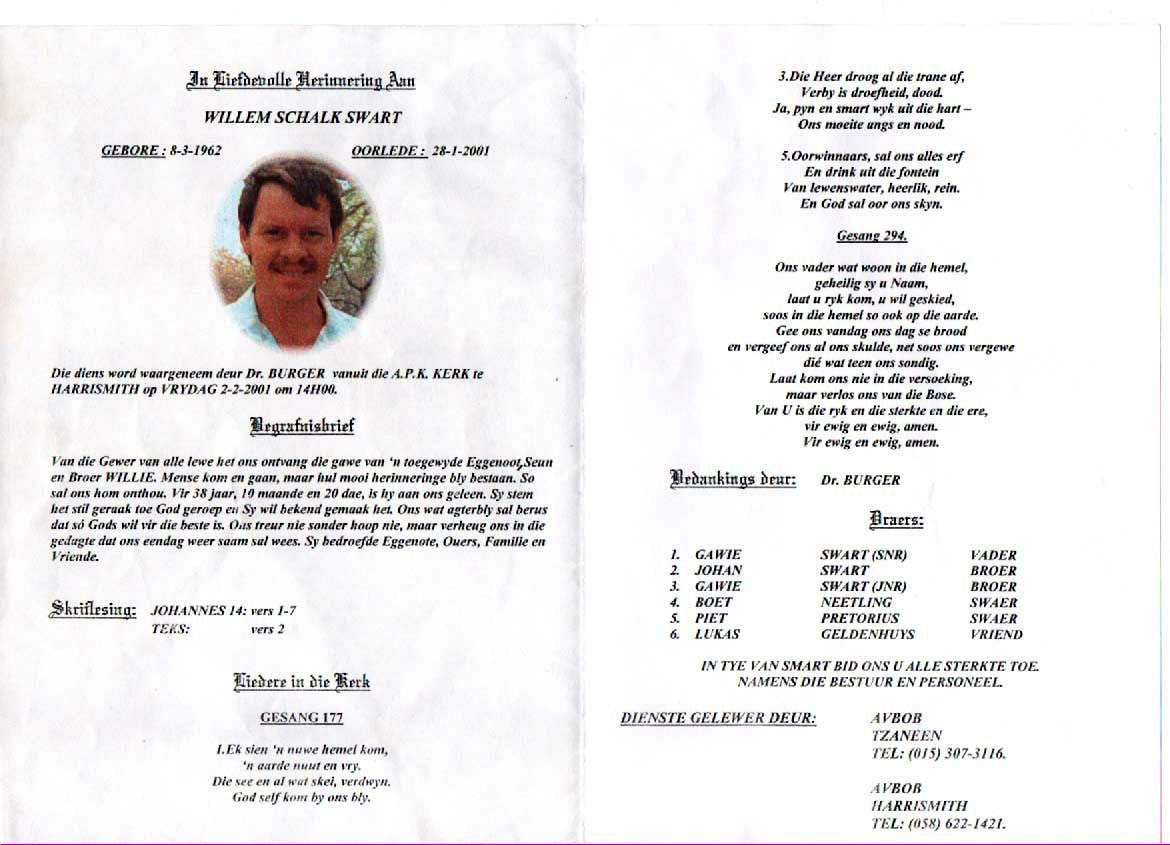 In Liefdevolle Herinnering Aan
WILLEM SCHALK SWART
GEBORE : 8-3-1962 OORLEDE : 28-1-2001
Die diens word waargeneem deur Dr. BURGER vanuit die A.P.K. KERK te
HARRISMITH op VRYDAG 2-2-2001 om 14H00.
Begrafnisbrief
Van die Gewer van alle lewe het ons ontvang die gawe van 'n toegewyde Eggenoot,Seun
en Broer WILLIE. Mense kom en gaan, maar hul mooi herinneringe bly bestaan. So
sal ons hom onthou. Vir 38 jaar, 10 maande en 20 dae, is hy aan ons geleen. Sy stem
het stil geraak toe God geroep en Sy wil bekend gemaak het. Ons wat agterbly sal berus
dat só Gods wil vir die beste is. Ons treur nie sonder hoop nie, maar verheug ons in die
gedagte dat ons eendag weer saam sal wees. Sy bedroefde Eggenote, Ouers, Familie en
Vriende.
Skriflesing: JOHANNES 14: vers 1-7
TEKS: vers 2
Liedere in die Kerk
GESANG 177
1.Ek sien 'n nuwe hemel kom,
'n aarde nuut en vry.
Die see en al wat skei, verdwyn.
God self kom by ons bly.
3.Die Heer droog al die trane af,
Verby is droefheid, dood.
Ja, pyn en smart wyk uit die hart –
Ons moeite angs en nood.
5.Oorwinnaars, sal ons alles erf
En drink uit die fontein
Van lewenswater, heerlik, rein.
En God sal oor ons skyn.
Gesang 294.
Ons vader wat woon in die hemel,
geheilig sy u Naam,
laat u ryk kom, u wil geskied,
soos in die hemel so ook op die aarde.
Gee ons vandag ons dag se brood
en vergeef ons al ons skulde, net soos ons vergewe
dié wat teen ons sondig.
Laat kom ons nie in die versoeking,
maar verlos ons van die Bose.
Van U is die ryk en die sterkte en die ere,
vir ewig en ewig, amen.
Vir ewig en ewig, amen.
Bedankings deur: Dr. BURGER
Draers:
1. GAWIE SWART (SNR) VADER
2. JOHAN SWART BROER
3. GAWIE SWART (JNR) BROER
4. BOET NEETLING SWAER
5. PIET PRETORIUS SWAER
6. LUKAS GELDENHUYS VRIEND
IN TYE VAN SMART BID ONS U ALLE STERKTE TOE.
NAMENS DIE BESTUUR EN PERSONEEL.
DIENSTE GELEWER DEUR: AVBOB
TZANEEN
TEL: (015) 307-3116.
AVBOB
HARRISMITH
TEL: (058) 622-1421.